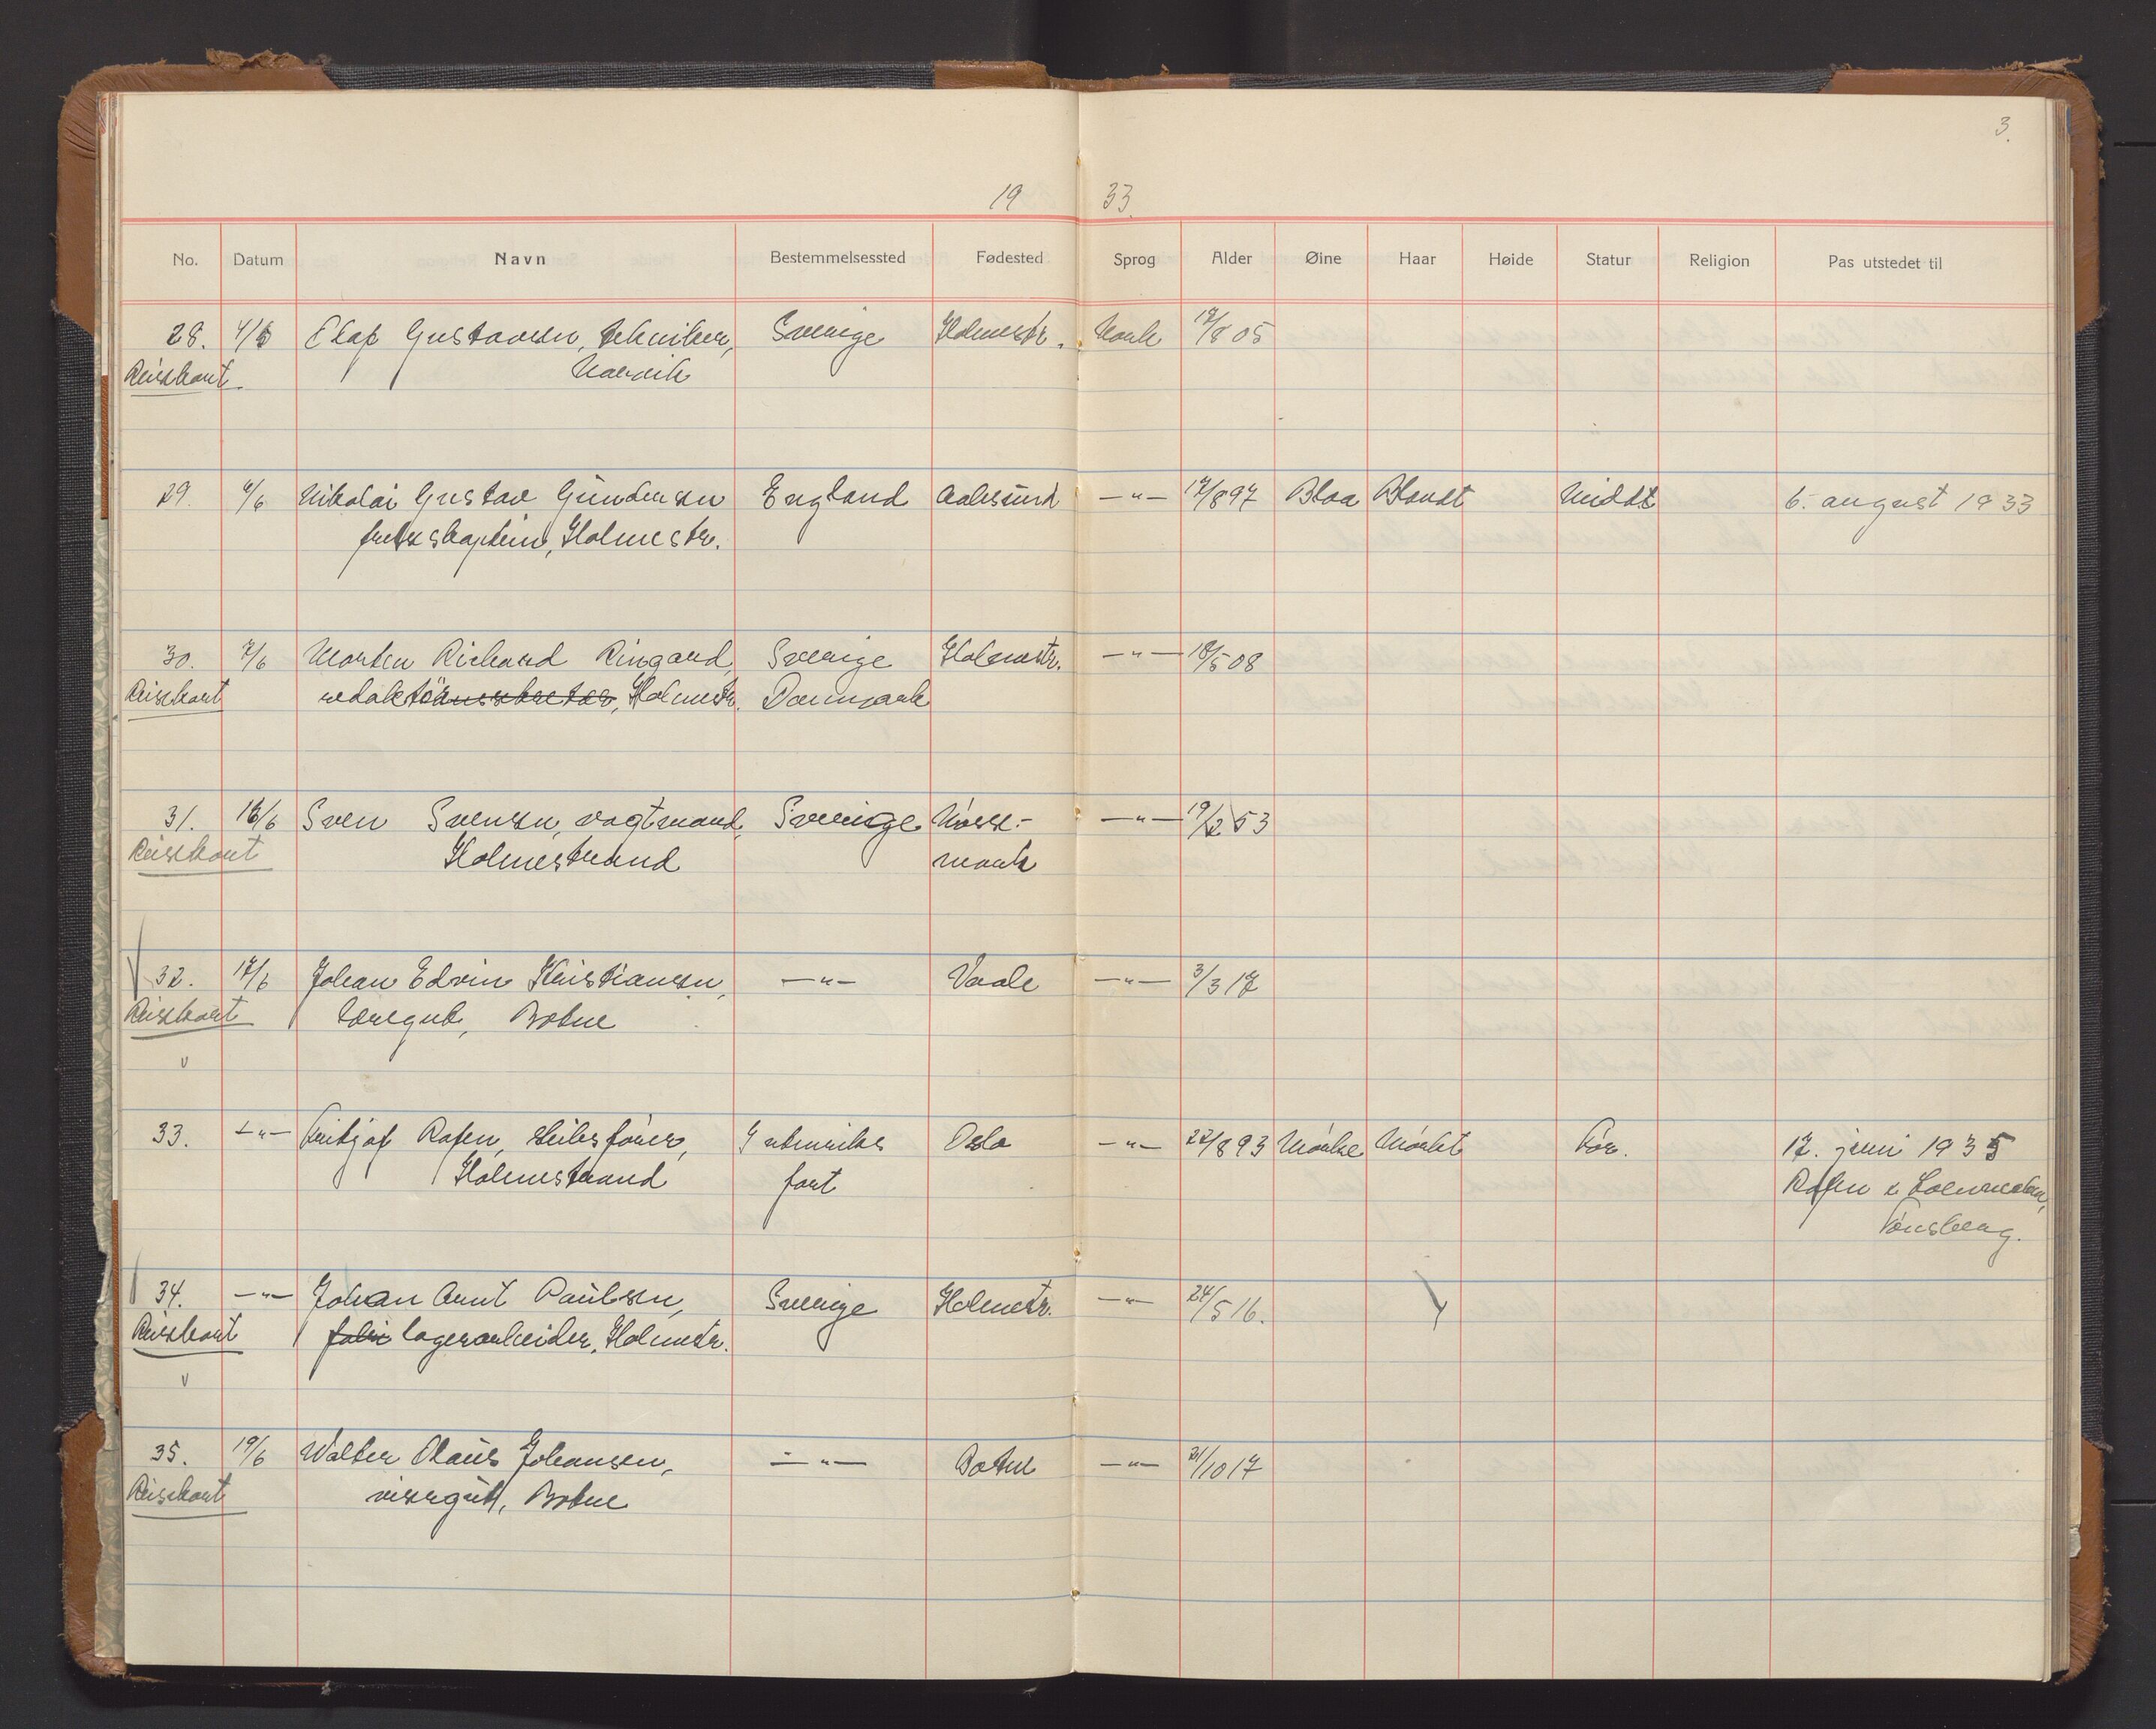 3.
19 33.
No. Datum Navn Bestemmelsessted Fødested Sprog Alder Øine Haar Høide Statur Religion Pas utstedet til
28. 4/6 Olaf Gustavsen, tekniker, Sverige Holmestr. Norsk 17/8 05
Reisekort Narvik
29. 6/6 Nikolai Gustav Gundersen England Aalesund —"— 17/8 97 Blaa Blondt Middt 6. august 1933
kaptein, Holmestr.
30. 7/6 Morten Richard Ringard, Sverige Holmestr. —"— 18/5 08
Reisekort redaktør, Holmestr. Danmark
31. 16/6 Sven Svensen, vagtmand, Sverige Norsk- —"— 19/2 53
Reisekort Holmestrand mark
32. 17/6 Johan Edvin Kristiansen, —"— Vaale —"— 3/3 17
Reisekort læregut, Botne
v
33. —"— Fritjof Rafen, skibsfører, Innenriks Oslo —"— 22/8 93 Mørke Mørkt Før. 17. juni 1935
Holmestrand fart Rafen &
Tønsberg.
34. —"— Johan Arnt Paulsen, Sverige Holmestr. —"— 24/5 16.
Reisekort fabri lagerarbeider, Holmestr.
v
35. 19/6 Walter Olaus Johansen, —"— Botne —"— 31/10 17
Reisekort visergutt, Botne